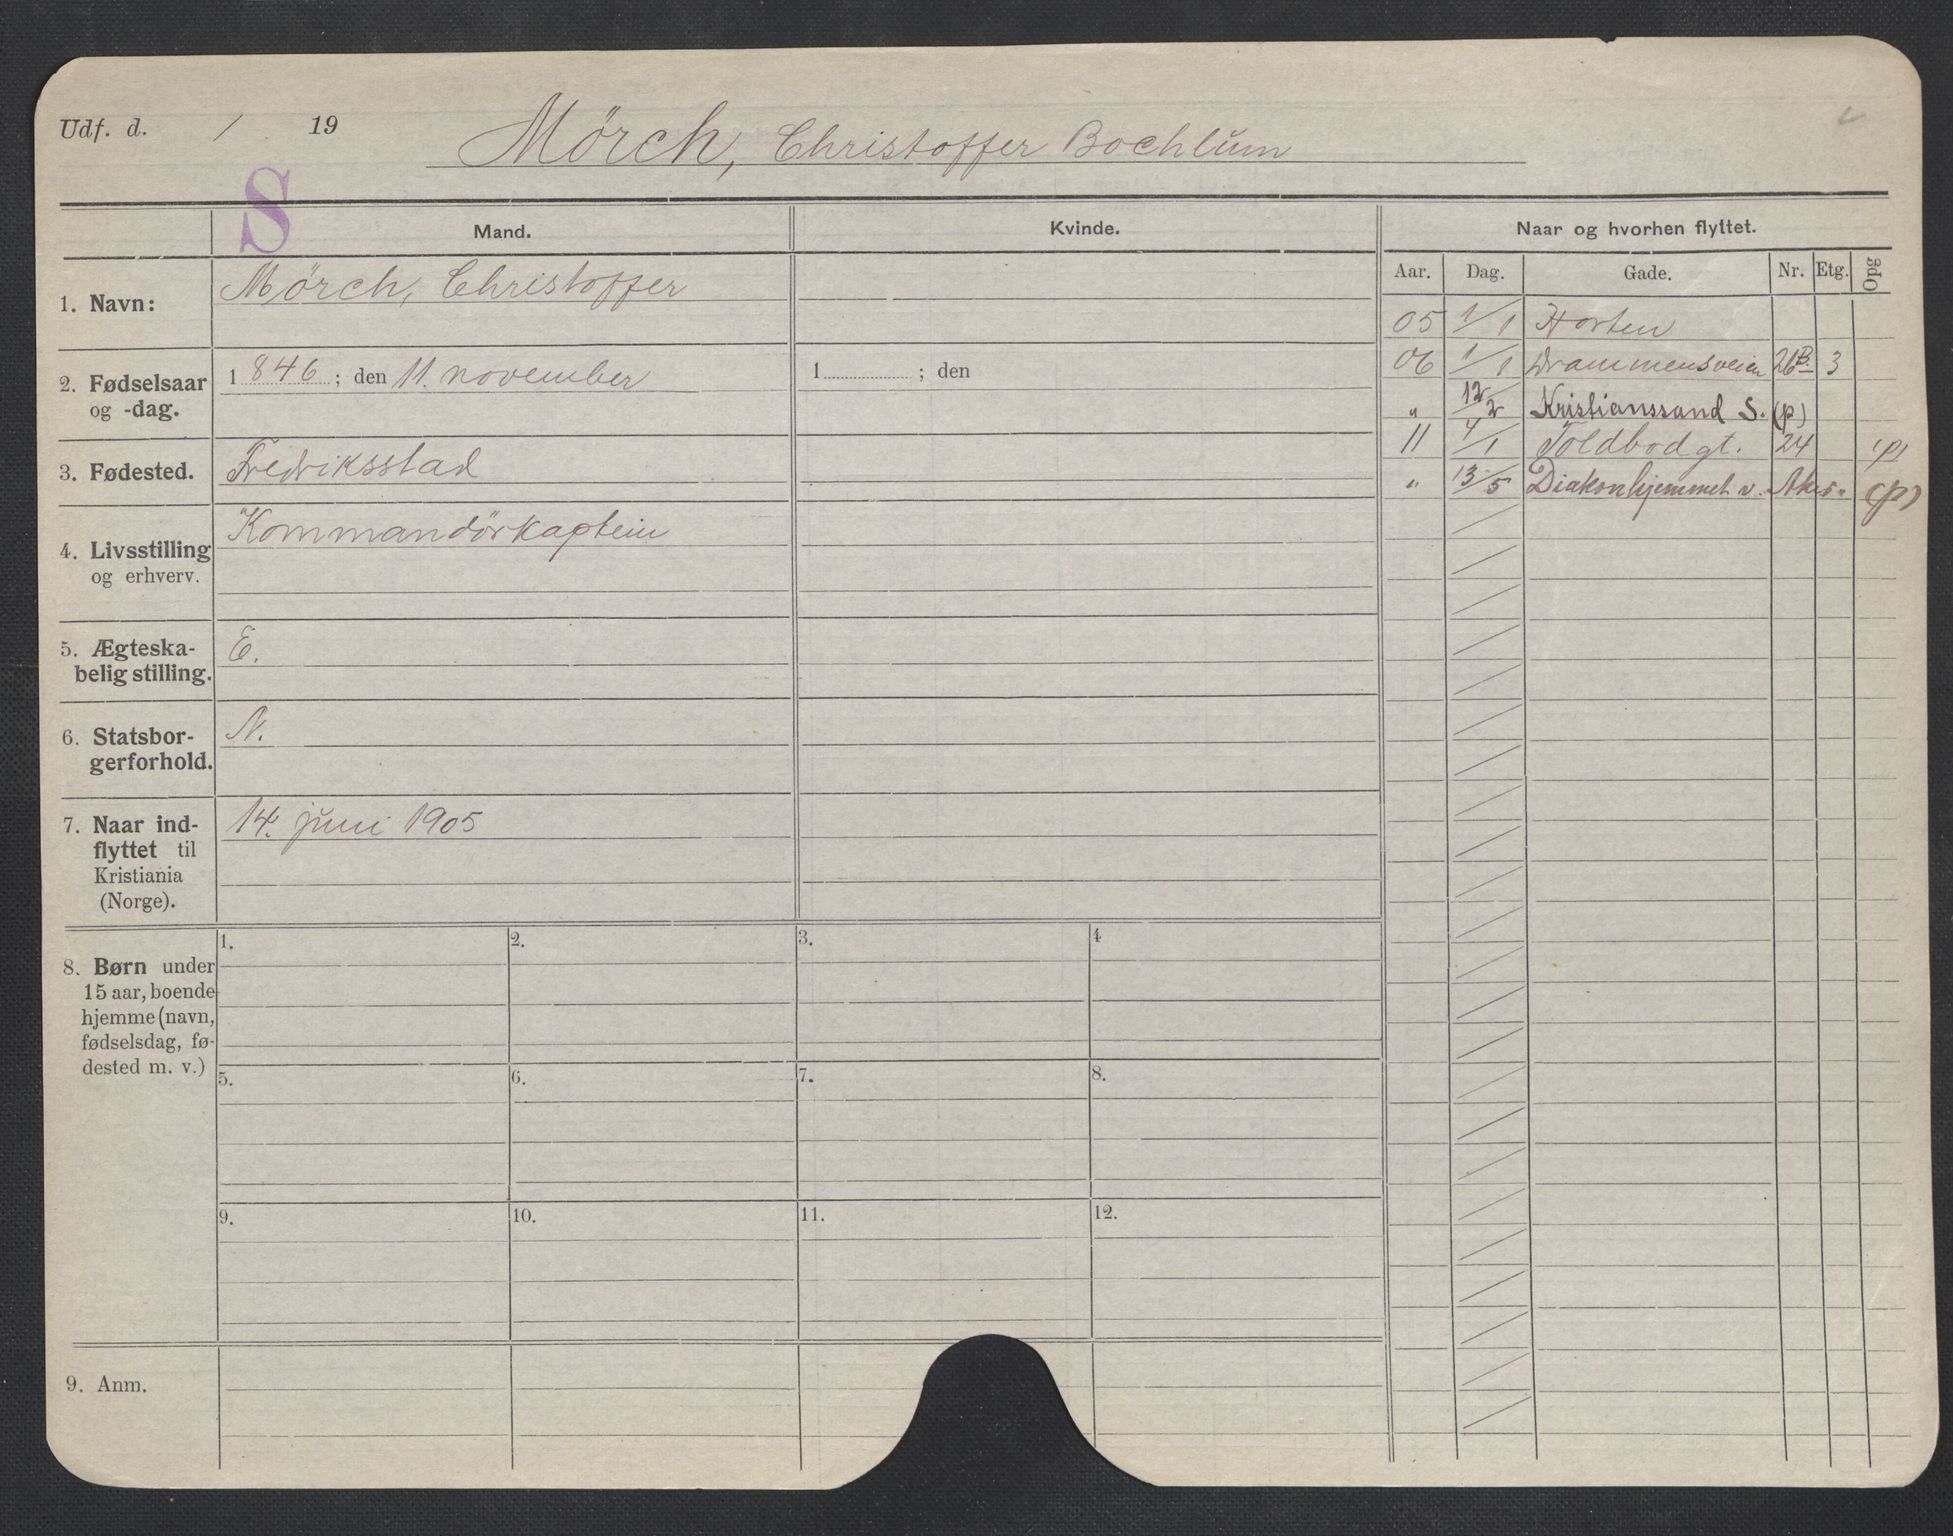 Udf. d. / 19
Mörch, Christoffer Bochlum
S
Mand.
Kvinde.
Naar og hvorhen flyttet.
Aar. Dag. Gade. Nr. Etg. Opg
1. Navn:
Mörch, Christoffer
2. Fødselsaar
og -dag.
1846; den 11. november
1 ; den
3. Fødested.
Fredriksstad
4. Livsstilling
og erhverv.
Kommandörkaptein
5. Ægteska-
belig stilling.
E.
6. Statsbor-
gerforhold.
N.
7. Naar ind-
flyttet til
Kristiania
(Norge).
14. juni 1905
05 1/1 Horten
06 1/1 Drammensveien 26B. 3
" 12/2 Kristianssand S. (p)
11 4/1 Toldbodgt. 24 (p)
" 13/5 Diakonhjemmet v. Aker. (p)
8. Børn under
15 aar, boende
hjemme (navn,
fødselsdag, fø-
dested m. v.)
1. 2. 3. 4
5. 6. 7. 8.
9. 10. 11. 12.
9. Anm.